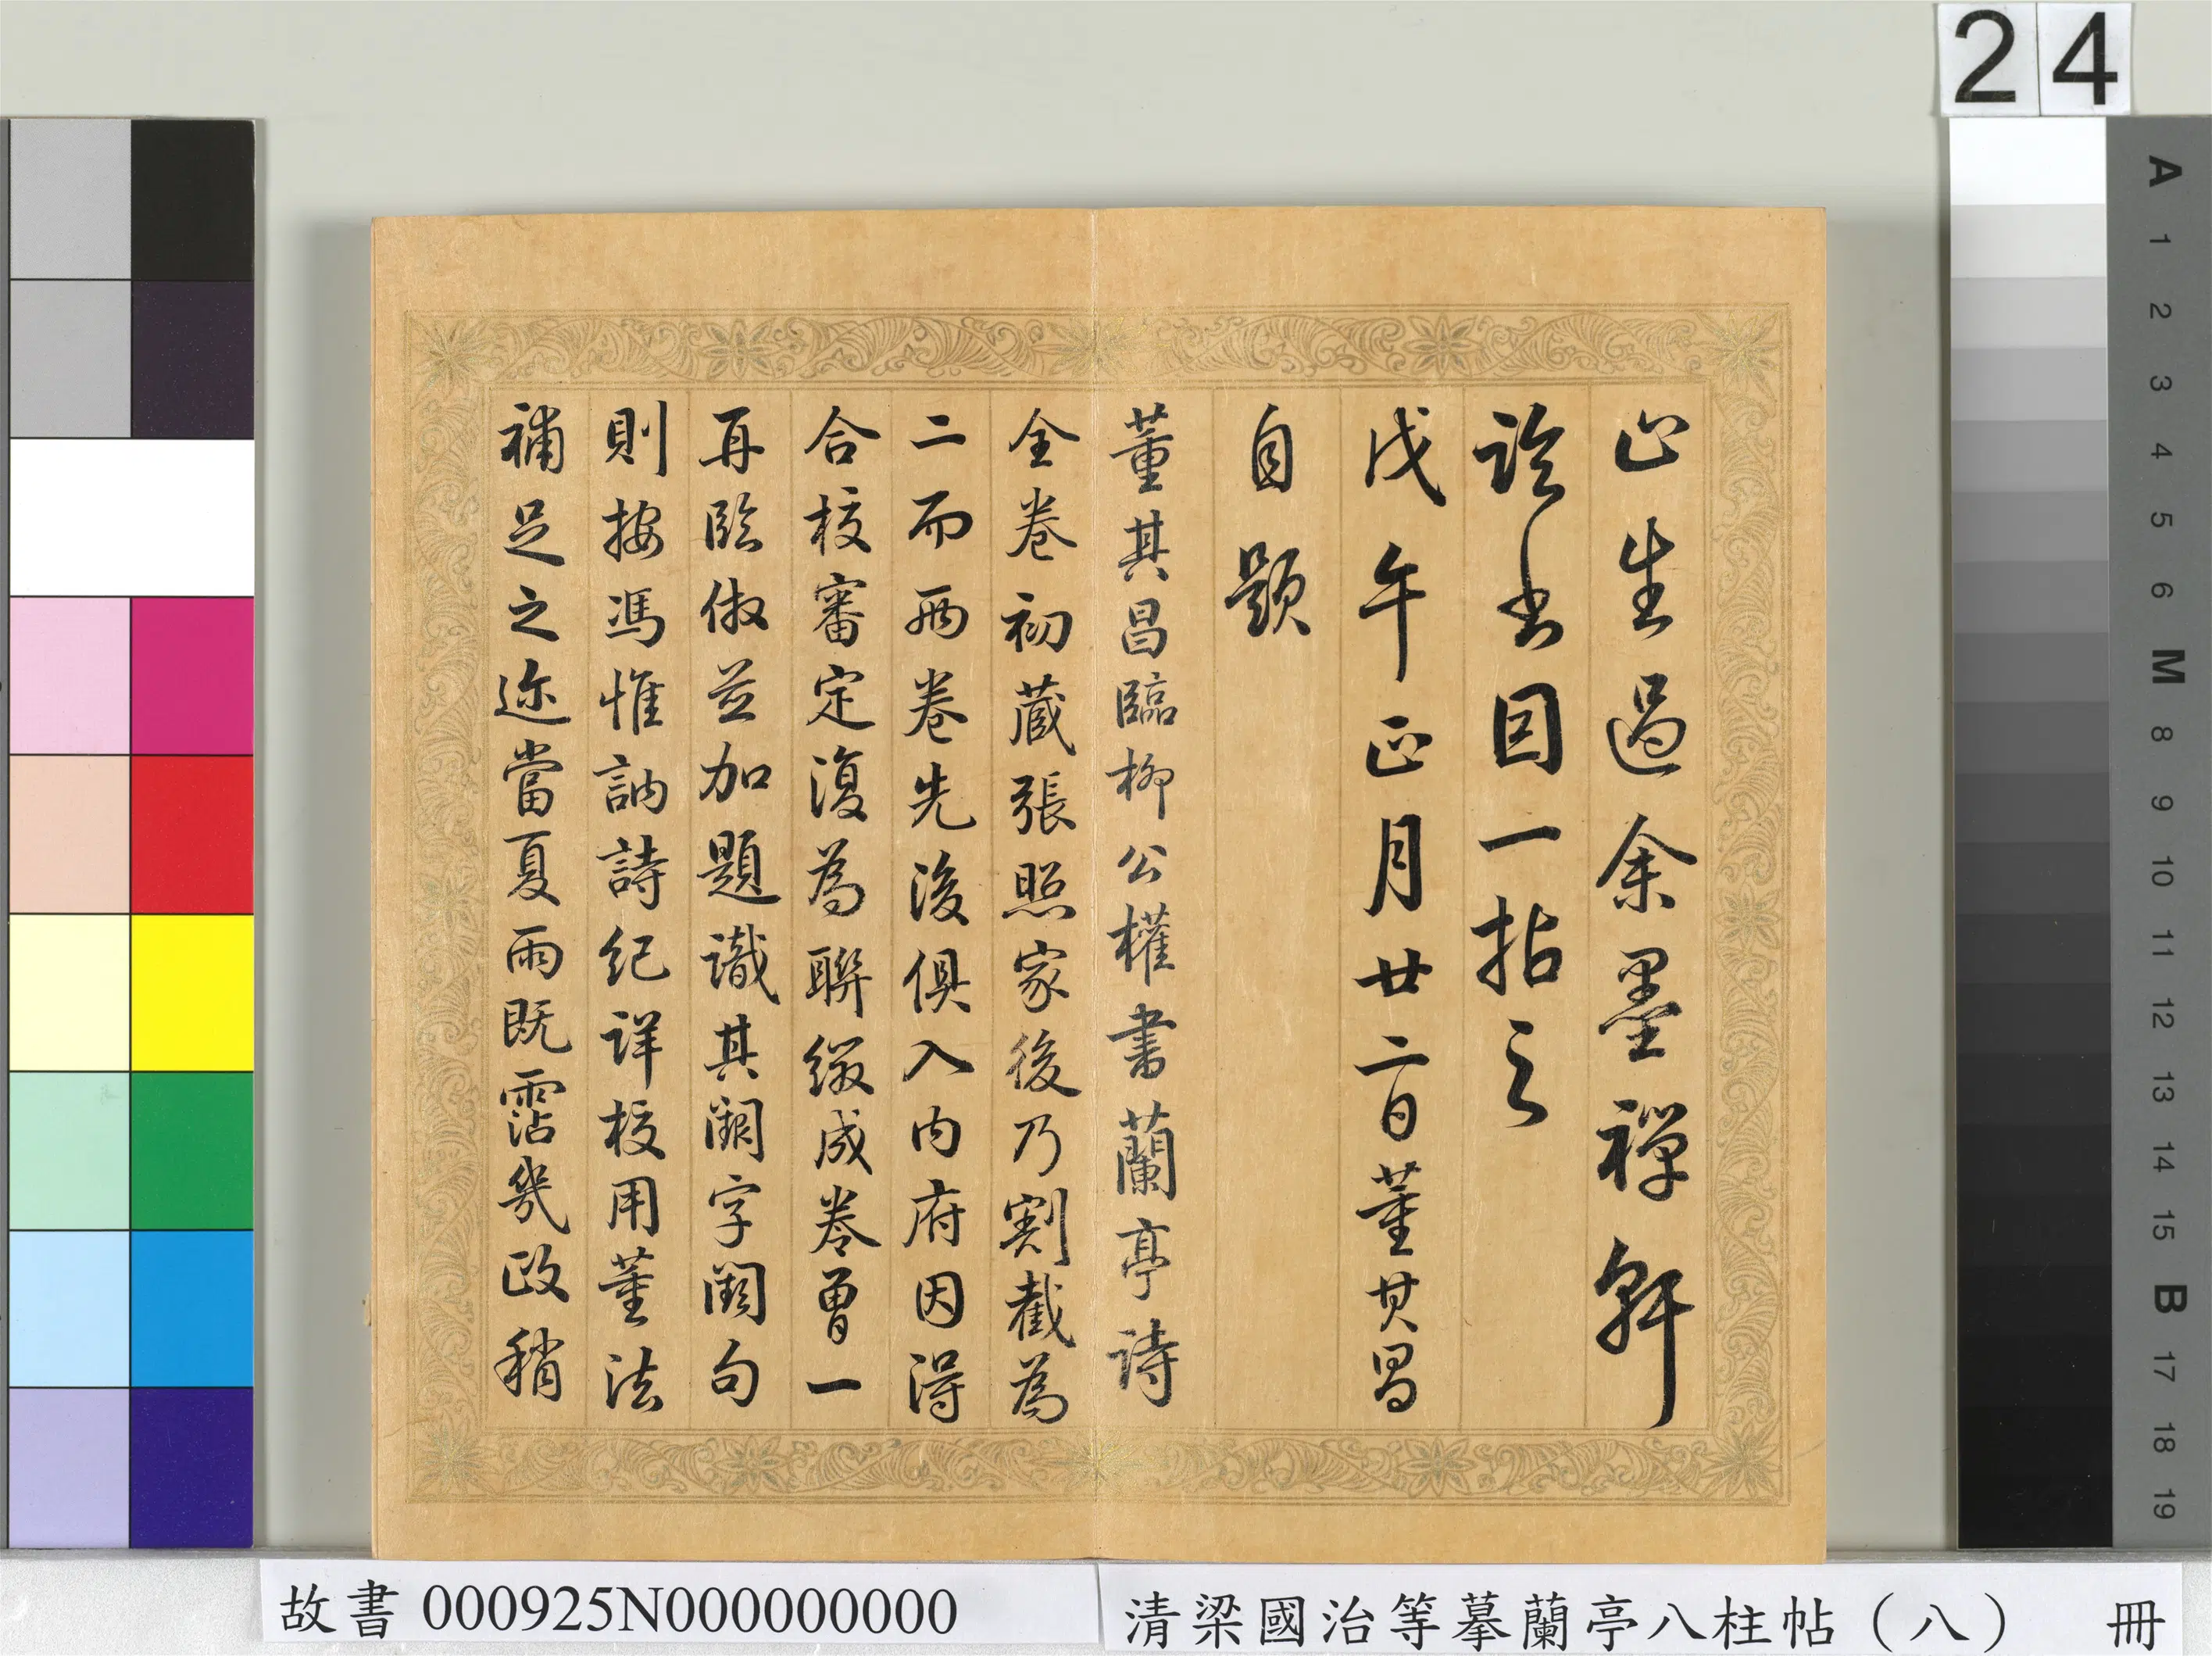 24
止生過余墨禪軒
論書因一拈之
戊午正月廿二日董其昌
自題
董其昌臨柳公權書蘭亭詩
全卷初藏張照家後乃割截為
二而兩卷先後俱入內府因得
合校審定復為聯綴成卷曾一
再臨倣並加題識其闕字闕句
則按馮惟訥詩紀詳校用董法
補足之迩當夏雨既霑幾政稍
A
1
2
3
4
5
6
M
8
9
10
11
12
13
14
15
B
17
18
19
故書 000925N000000000
清梁國治等摹蘭亭八柱帖（八） 冊